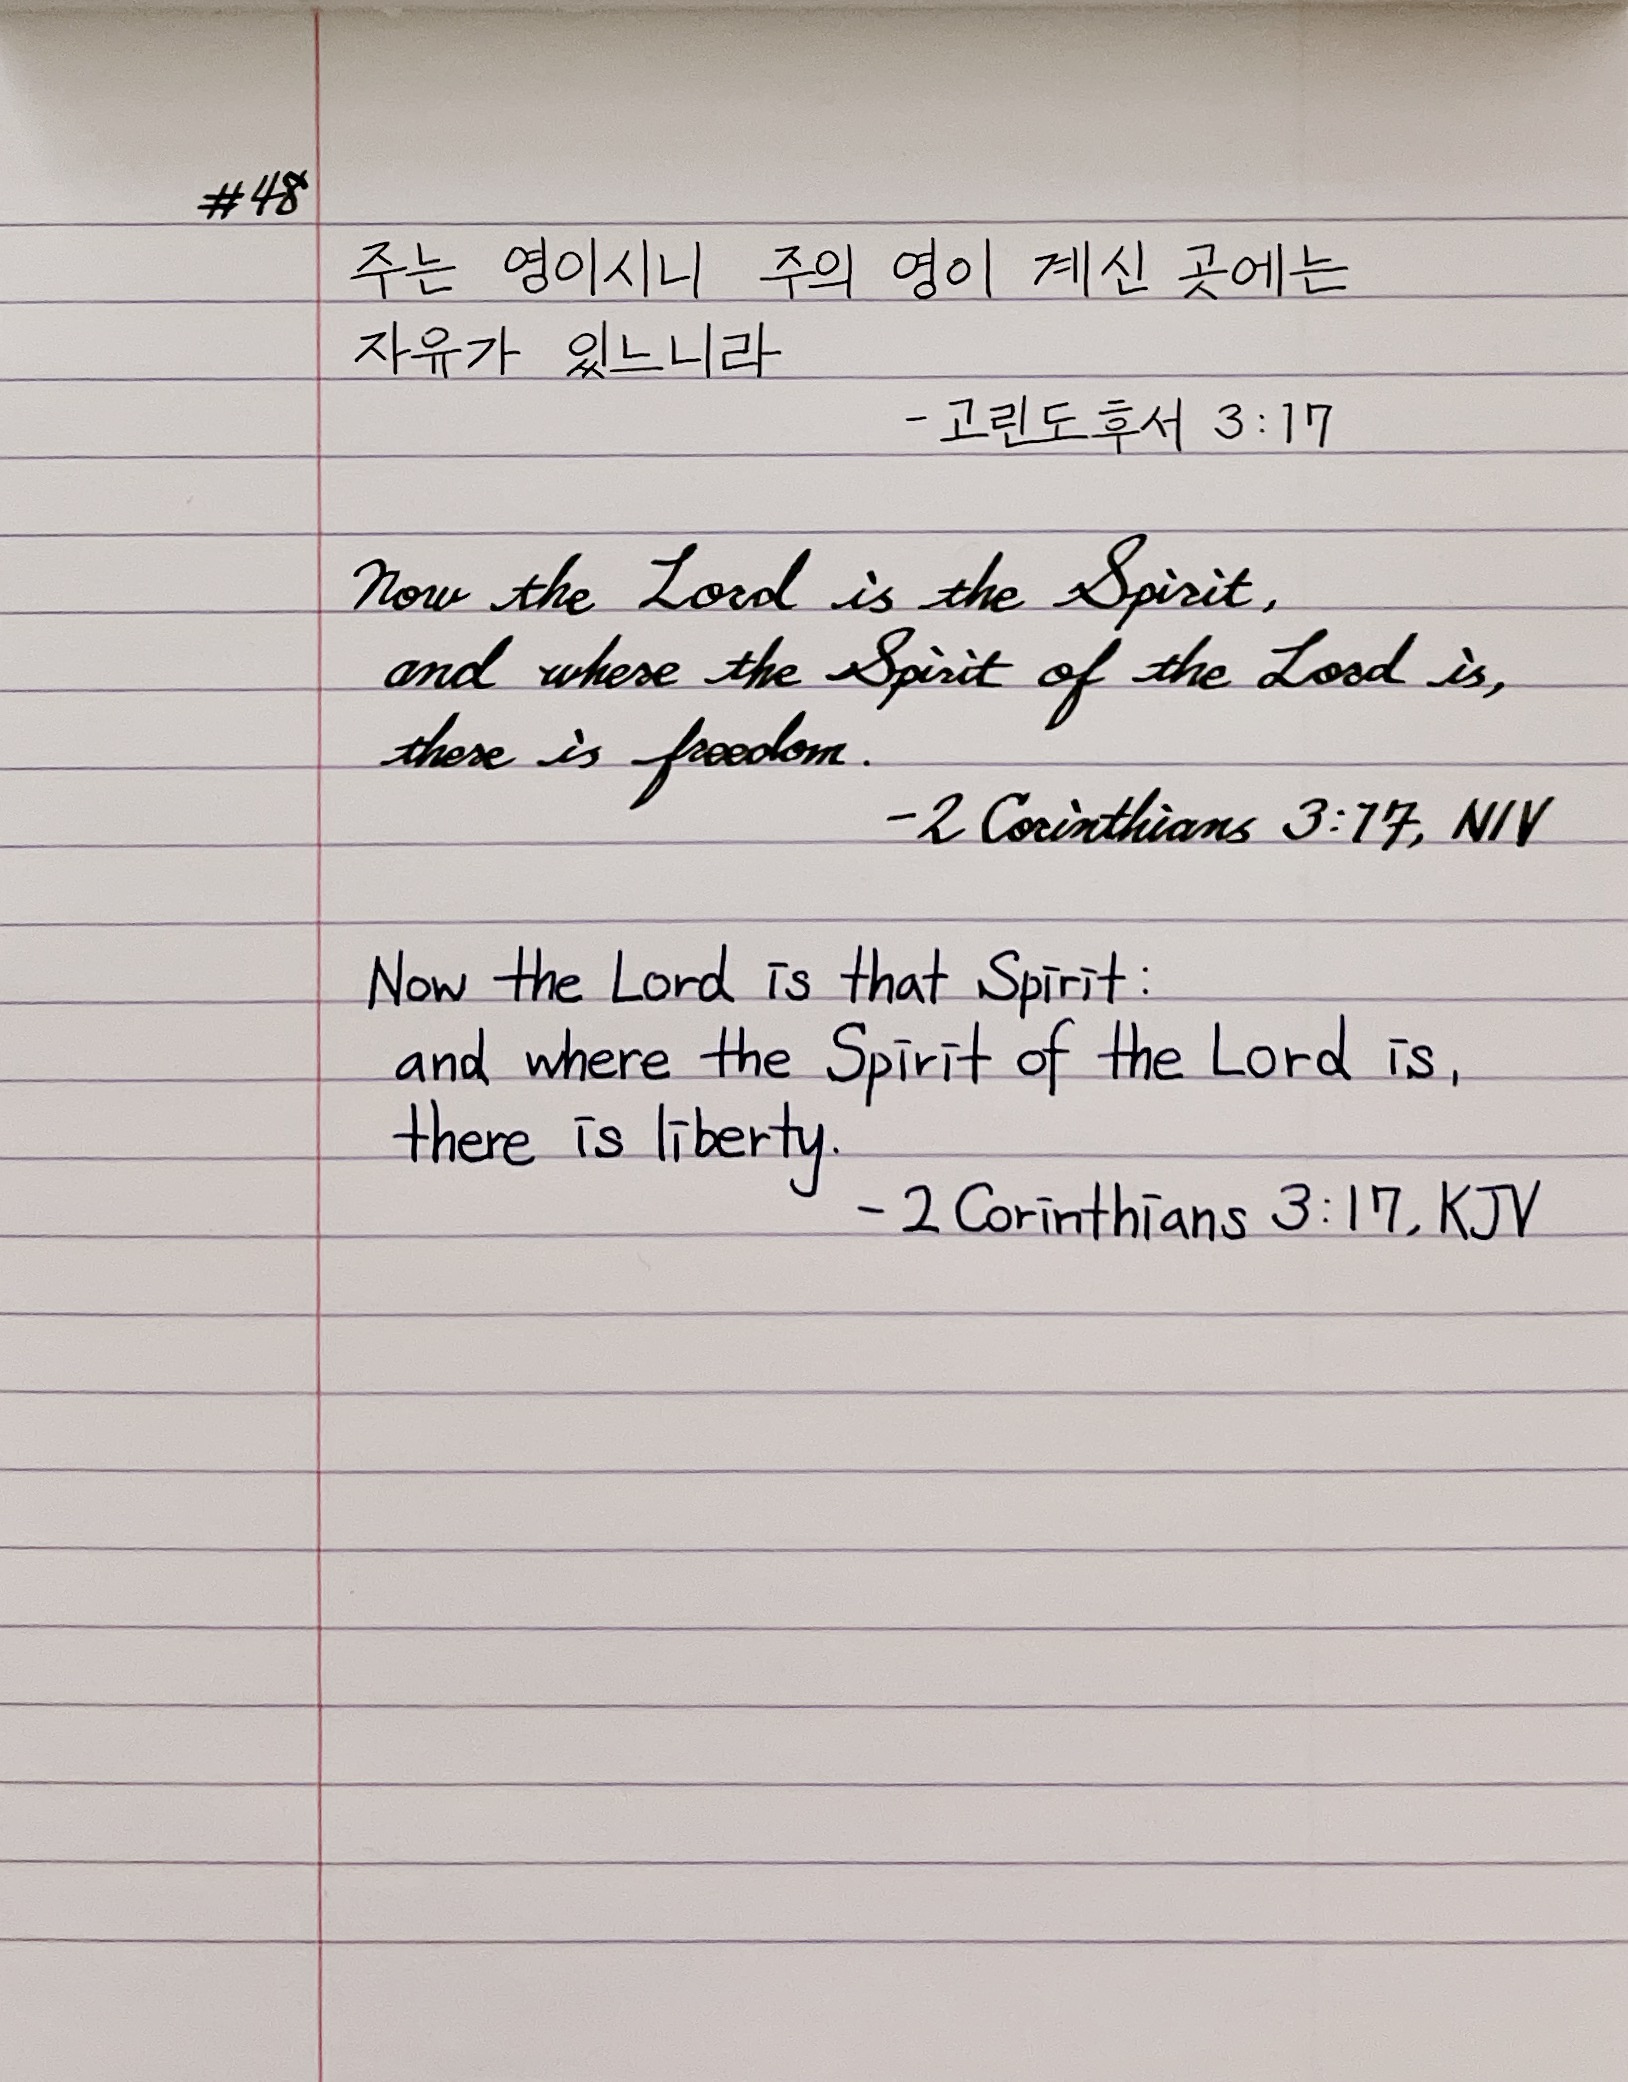 #48
주는 영이시니 주의 영이 계신 곳에는
자유가 있느니라
-고린도후서 3:17
Now the Lord is the Spirit,
and where the Spirit of the Lord is,
there is freedom.
-2 Corinthians 3:17, NIV
Now the Lord is that Spirit:
and where the Spirit of the Lord is,
there is liberty.
-2 Corinthians 3:17, KJV